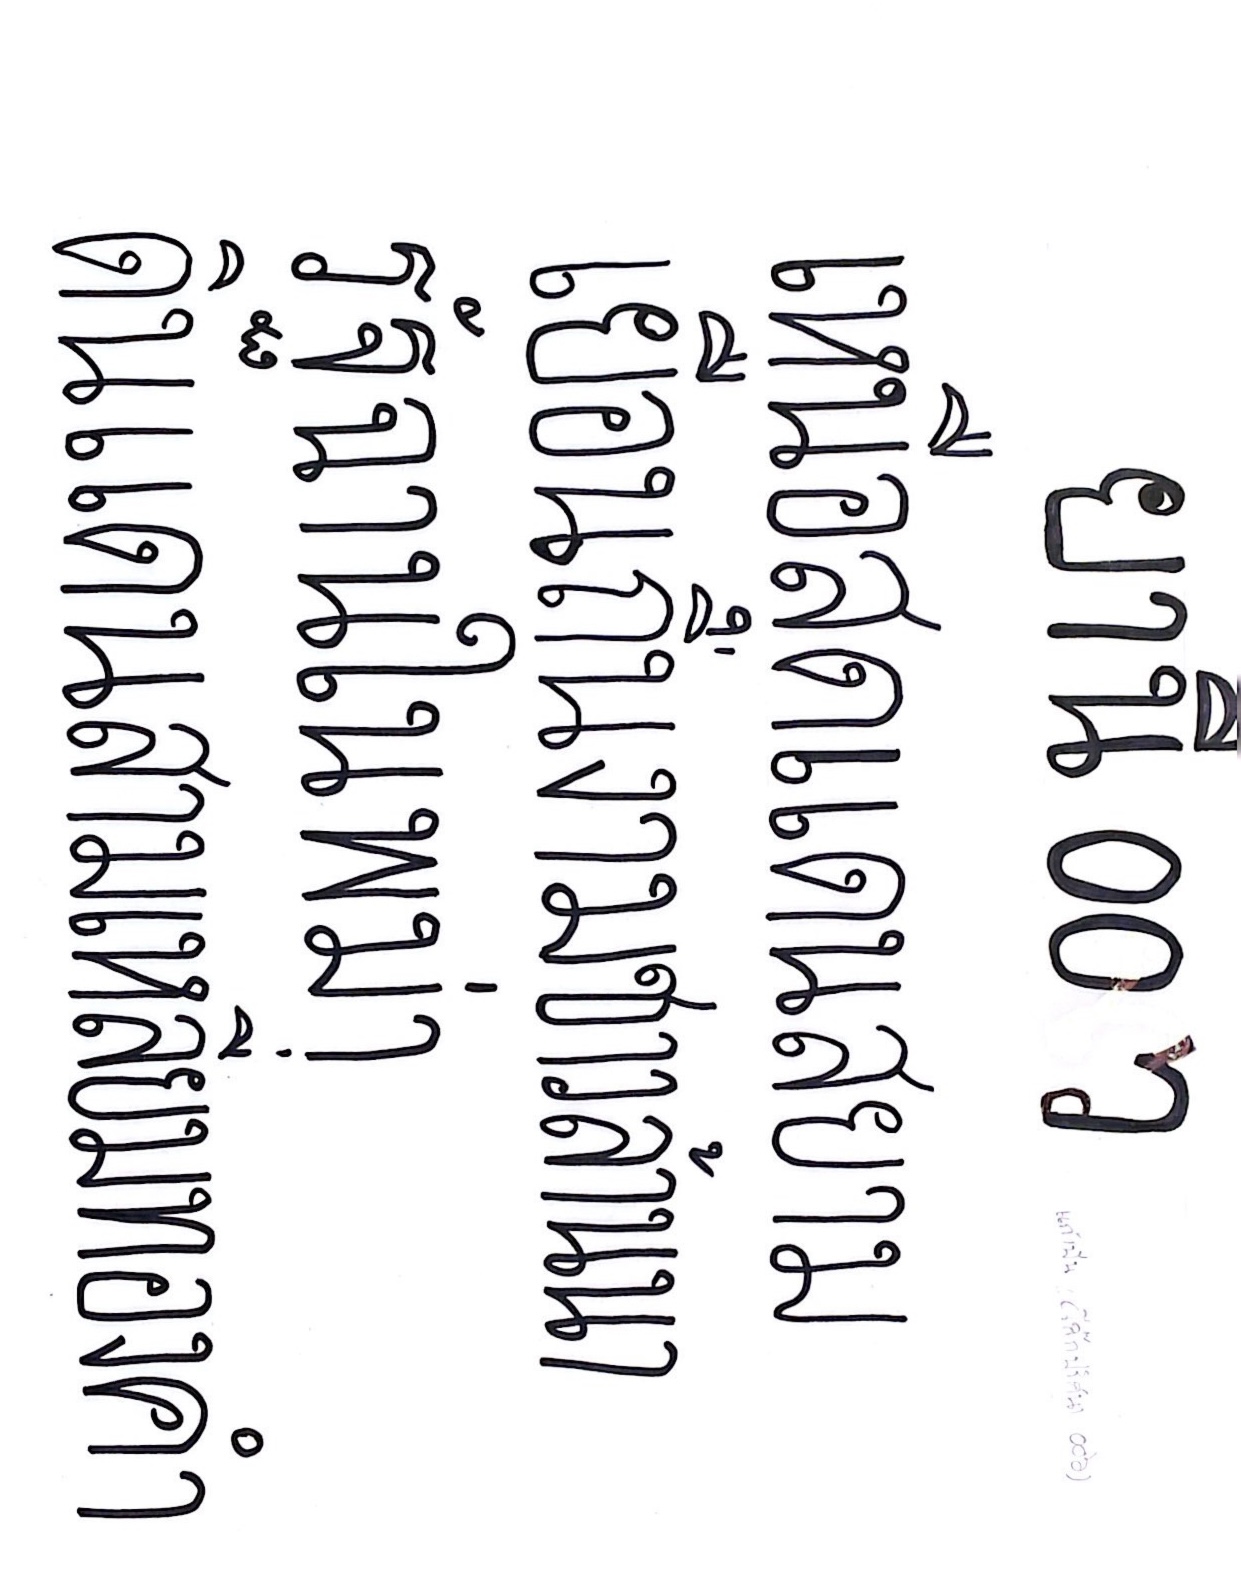 ยานี ๐๐ ว
เหนือสุดแดนสยาม
เยือนถิ่นงามชาวล้านนา
รัฐฉานในพม่า
ดินแดนสามเหลี่ยมทองคำ